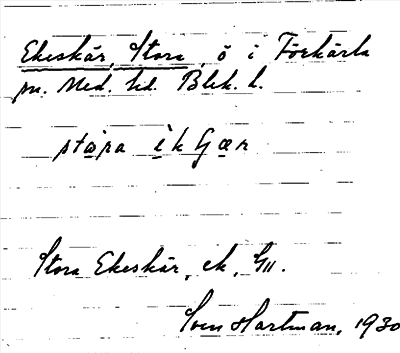 Ekeskär, Stora, ö i Förkärla
sn. Med. hd. Blek. l.
stọ̀ra èkʃær
Stora Ekeskär, ek,
Sven Hartman, 1930